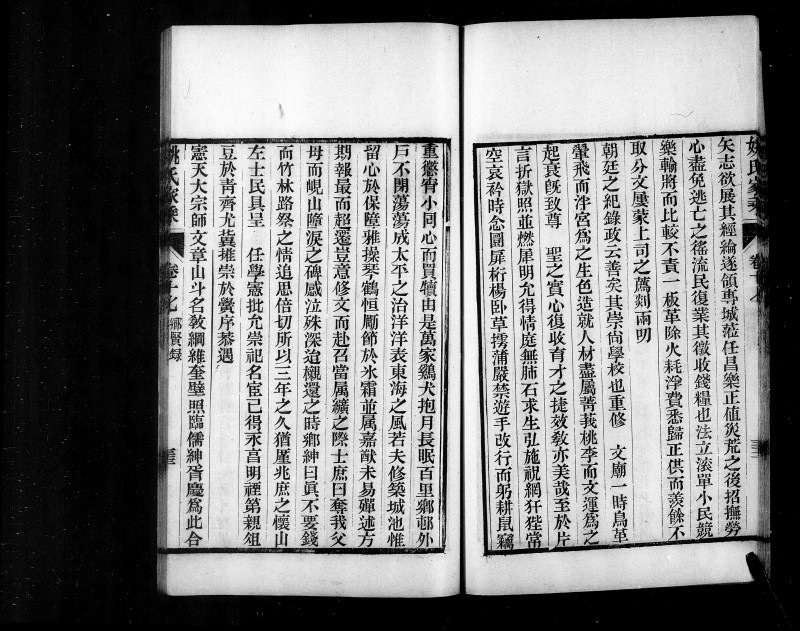 矢志欲展其經綸遂領專城蒞任昌樂正值災荒之後招撫勞
心盡免逃亡之徭流民復業其徵收錢糧也法立滾單小民競
樂輸將而比較不責一板革除火耗浮費悉歸正供而羨餘不
取分文屢蒙上司之薦剡兩叨
朝廷之紀錄政云善矣其崇尚學校也重修　文廟一時鳥革
翬飛而泮宮爲之生色造就人材盡屬菁莪桃李而文運爲之
起衰旣致尊　聖之實心復收育才之捷效敎亦美哉至於片
言折獄照並燃犀明允得情庭無肺石求生弘施祝網犴狴常
空哀矜時念圜扉桁楊卧草擩蒲嚴禁遊手改行而躬耕鼠竊
重懲宵小同心而買犢由是萬家鷄犬抱月長眠百里鄉邨外
戸不閉蕩蕩成太平之治洋洋表東海之風若夫修築城池惟
留心於保障雅操琴鶴恒勵節於氷霜並属嘉猷未易殫述方
期報最而超遷豈意修文而赴召當属纊之際士庶曰奪我父
母而峴山墮淚之碑感泣殊深迨櫬還之時鄉紳曰眞不要錢
而竹林路祭之情追思倍切所以三年之久猶厪兆庶之懷山
左士民具呈　任學憲批允崇祀名宦已得永高明禋第親俎
豆於靑齊尤冀堆崇於黌序恭遇
憲天大宗師文章山斗名敎綱維奎璧照臨儒紳胥慶爲此合
姚氏家乘
卷十七
鄉賢錄
三